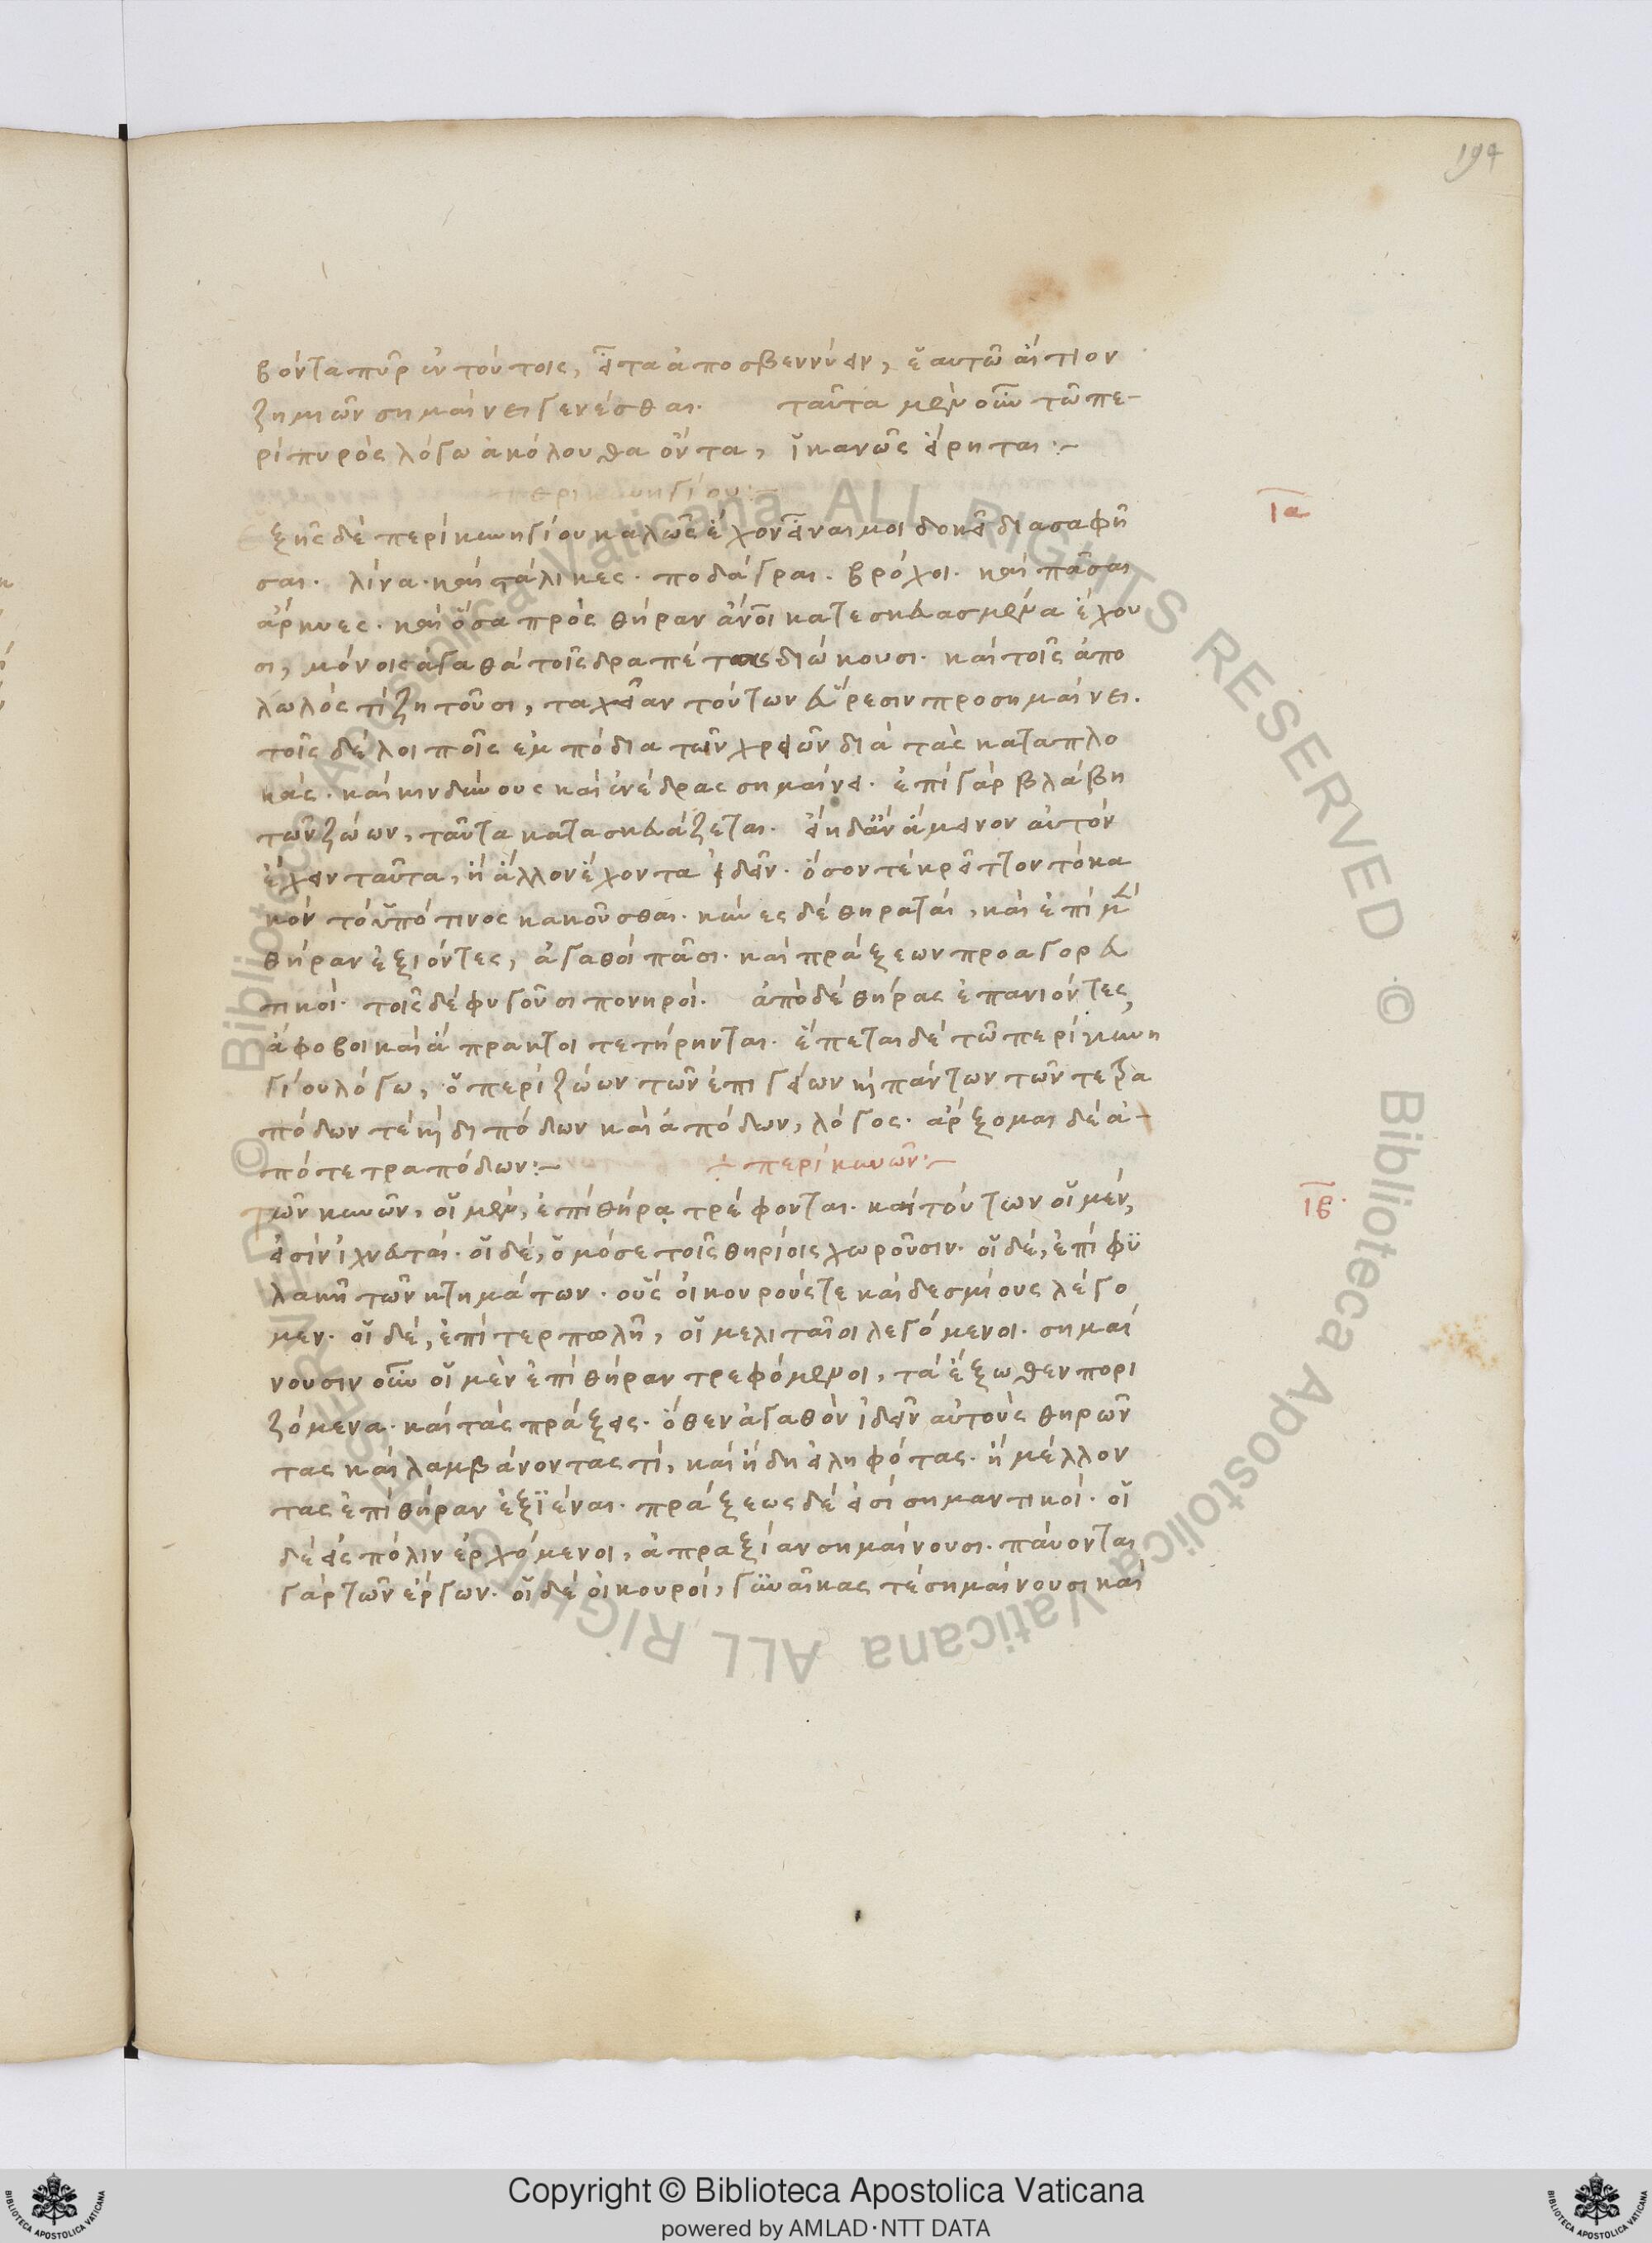 194
βόντα πῦρ ἐν τούτοις, εἶτα ἀποσβεννύειν, ἑαυτῶ αἴτιον
ζημιῶν σημαίνει γενέσθαι. ταῦτα μὲν οὖν τῶ πε-
ρὶ πυρὸς λόγω ἀκόλουθα ὄντα, ἱκανῶς εἴρηται:-
περὶ κυνηγίου:-
ια
ξῆς δὲ περὶ κυνηγίου καλῶς ἔχον εἶναι μοι δοκεῖ διασαφῆ
σαι. λίνα. καὶ στάλικες. ποδάγραι. βρόχοι. καὶ πᾶσαι
ἄρκυες. καὶ ὅσα πρὸς θήραν ἄνοι κατεσκευασμένα ἔχου
σι, μόνοις ἀγαθὰ τοῖς δραπέτας διώκουσι. καὶ τοῖς ἀπο
λωλός τι ζητοῦσι, ταχεῖαν τούτων εὕρεσιν προσημαίνει.
τοῖς δὲ λοιποῖς ἐμπόδια τῶν χρειῶν διὰ τὰς καταπλο
κάς. καὶ κινδύνους καὶ ἐνέδρας σημαίνει. ἐπὶ γὰρ βλάβη
τῶν ζώων, ταῦτα κατασκευάζεται. εἴη δἂν ἄμεινον αὐτὸν
ἔχειν ταῦτα, ἢ ἄλλον ἔχοντα ἰδεῖν. ὅσον τὲ κρεῖττον τὸ κα
κὸν τὸ ὑπό τινος κακοῦσθαι. κύνες δὲ θηραταὶ, καὶ ἐπὶ
θήραν ἐξιόντες, ἀγαθοὶ πᾶσι. καὶ πράξεων προαγορευ
τικοί. τοῖς δὲ φυγοῦσι πονηροί. ἀπὸ δὲ θήρας ἐπανιόντες,
ἄφοβοι καὶ ἄπρακτοι τετήρηνται. ἕπεται δὲ τῶ περὶ κυνη
γίου λόγω, ὁ περὶ ζώων τῶν ἐπιγείων καὶ πάντων τῶν τετρα
πόδων τὲ καὶ διπόδων καὶ ἀπόδων, λόγος. ἄρξομαι δὲ ἀ-
πὸ τετραπόδων:- ÷ περὶ κυνῶν:-
ιβ.
Τῶν κυνῶν, οἱ μὲν, ἐπὶ θήρα τρέφονται. καὶ τούτων οἱ μέν,
εἰσὶν ἰχνευταί. οἱ δέ, ὁμόσε τοῖς θηρίοις χωροῦσιν. οἱ δὲ, ἐπὶ φυ
λακῆ τῶν κτημάτων. οὓς οἰκουρούς τε καὶ δεσμίους λέγο
μεν. οἱ δέ, ἐπὶ τερπωλῆ, οἱ μελιταῖοι λεγόμενοι. σημαί
νουσιν οὖν οἱ μὲν ἐπὶ θήραν τρεφόμενοι, τὰ ἔξωθεν πορι
ζόμενα. καὶ τὰς πράξεις. ὅθεν ἀγαθὸν ἰδεῖν αὐτοὺς θηρῶν
τας καὶ λαμβάνοντας τί, καὶ ἤδη εἰληφότας. ἢ μέλλον
τας ἐπὶ θήραν ἐξϊέναι. πράξεως δὲ εἰσὶ σημαντικοί. οἱ
δὲ εἰς πόλιν ἐρχόμενοι, ἀπραξίαν σημαίνουσι. παύονται
γὰρ τῶν ἔργων. οἱ δὲ οἰκουροί, γυναῖκας τὲ σημαίνουσι καὶ
© Biblioteca Apostolica Vaticana ALL RIGHTS RESERVED © Biblioteca Apostolica Vaticana ALL RIGHTS RESERVED
Copyright © Biblioteca Apostolica Vaticana
powered by AMLAD·NTT DATA
BIBLIOTECA APOSTOLICA VATICANA
BIBLIOTECA APOSTOLICA VATICANA